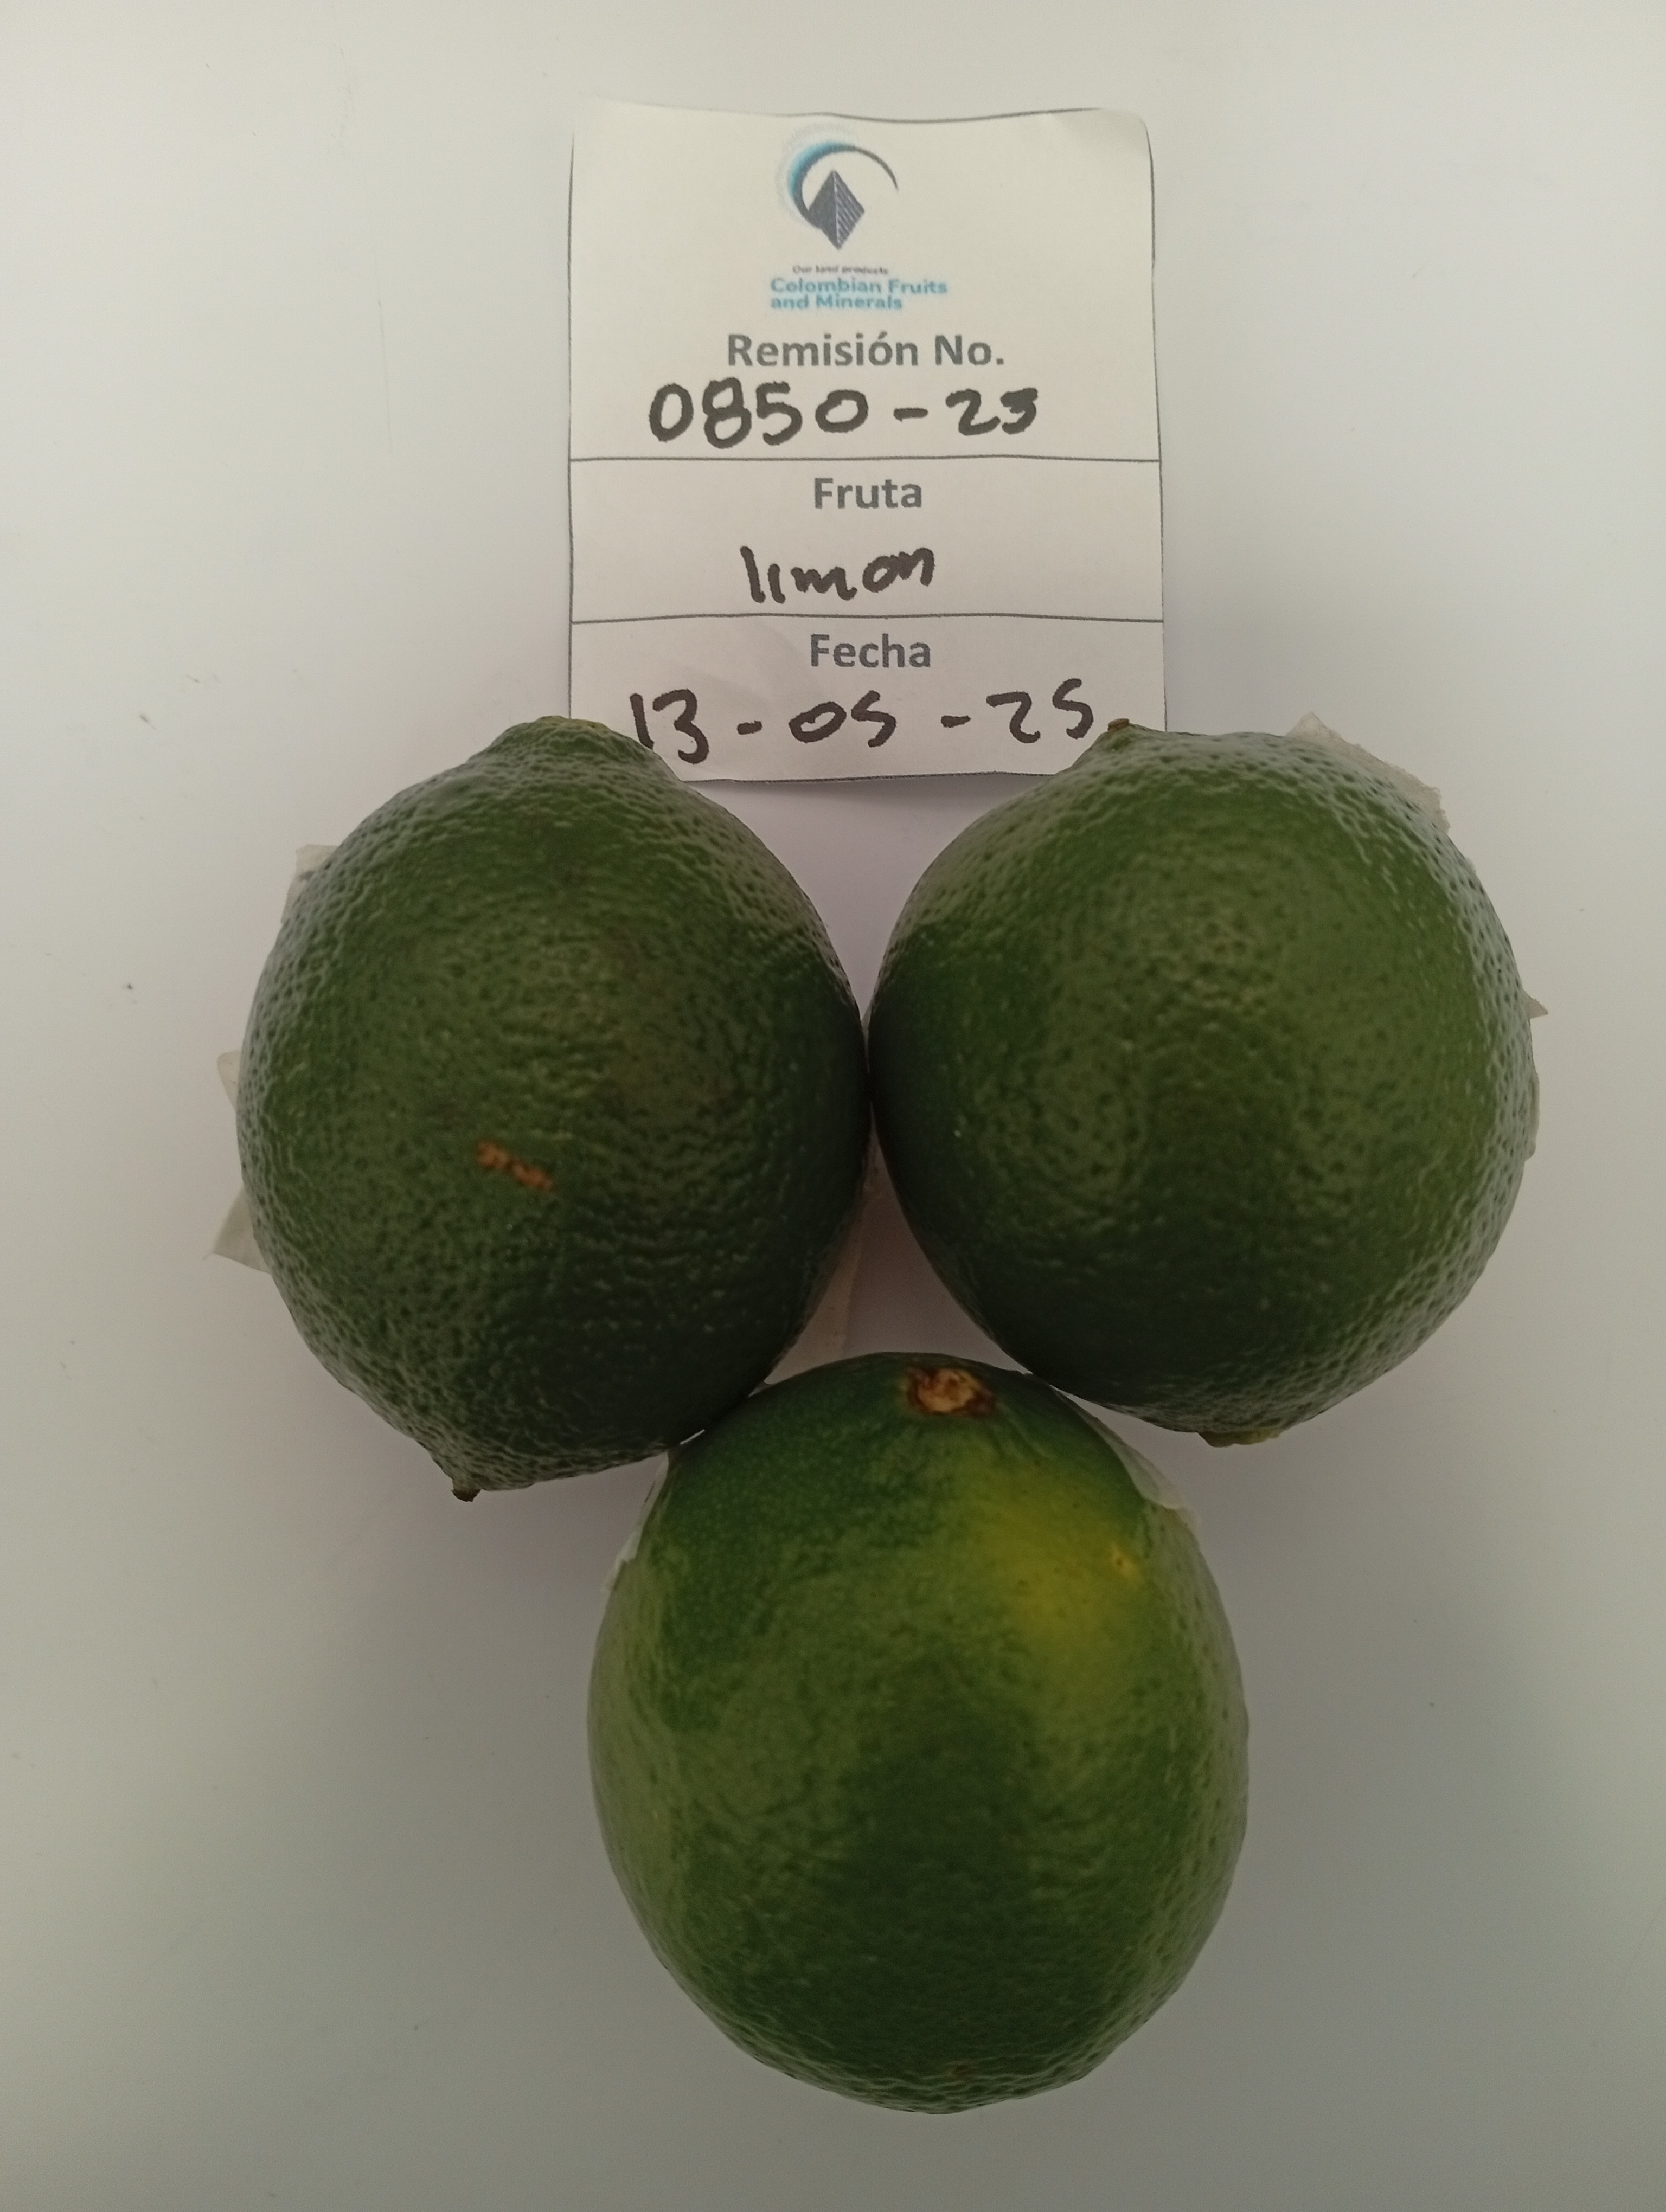 Our land products
Colombian Fruits
and Minerals
Remisión No.
0850-23
Fruta
limon
Fecha
13-05-25